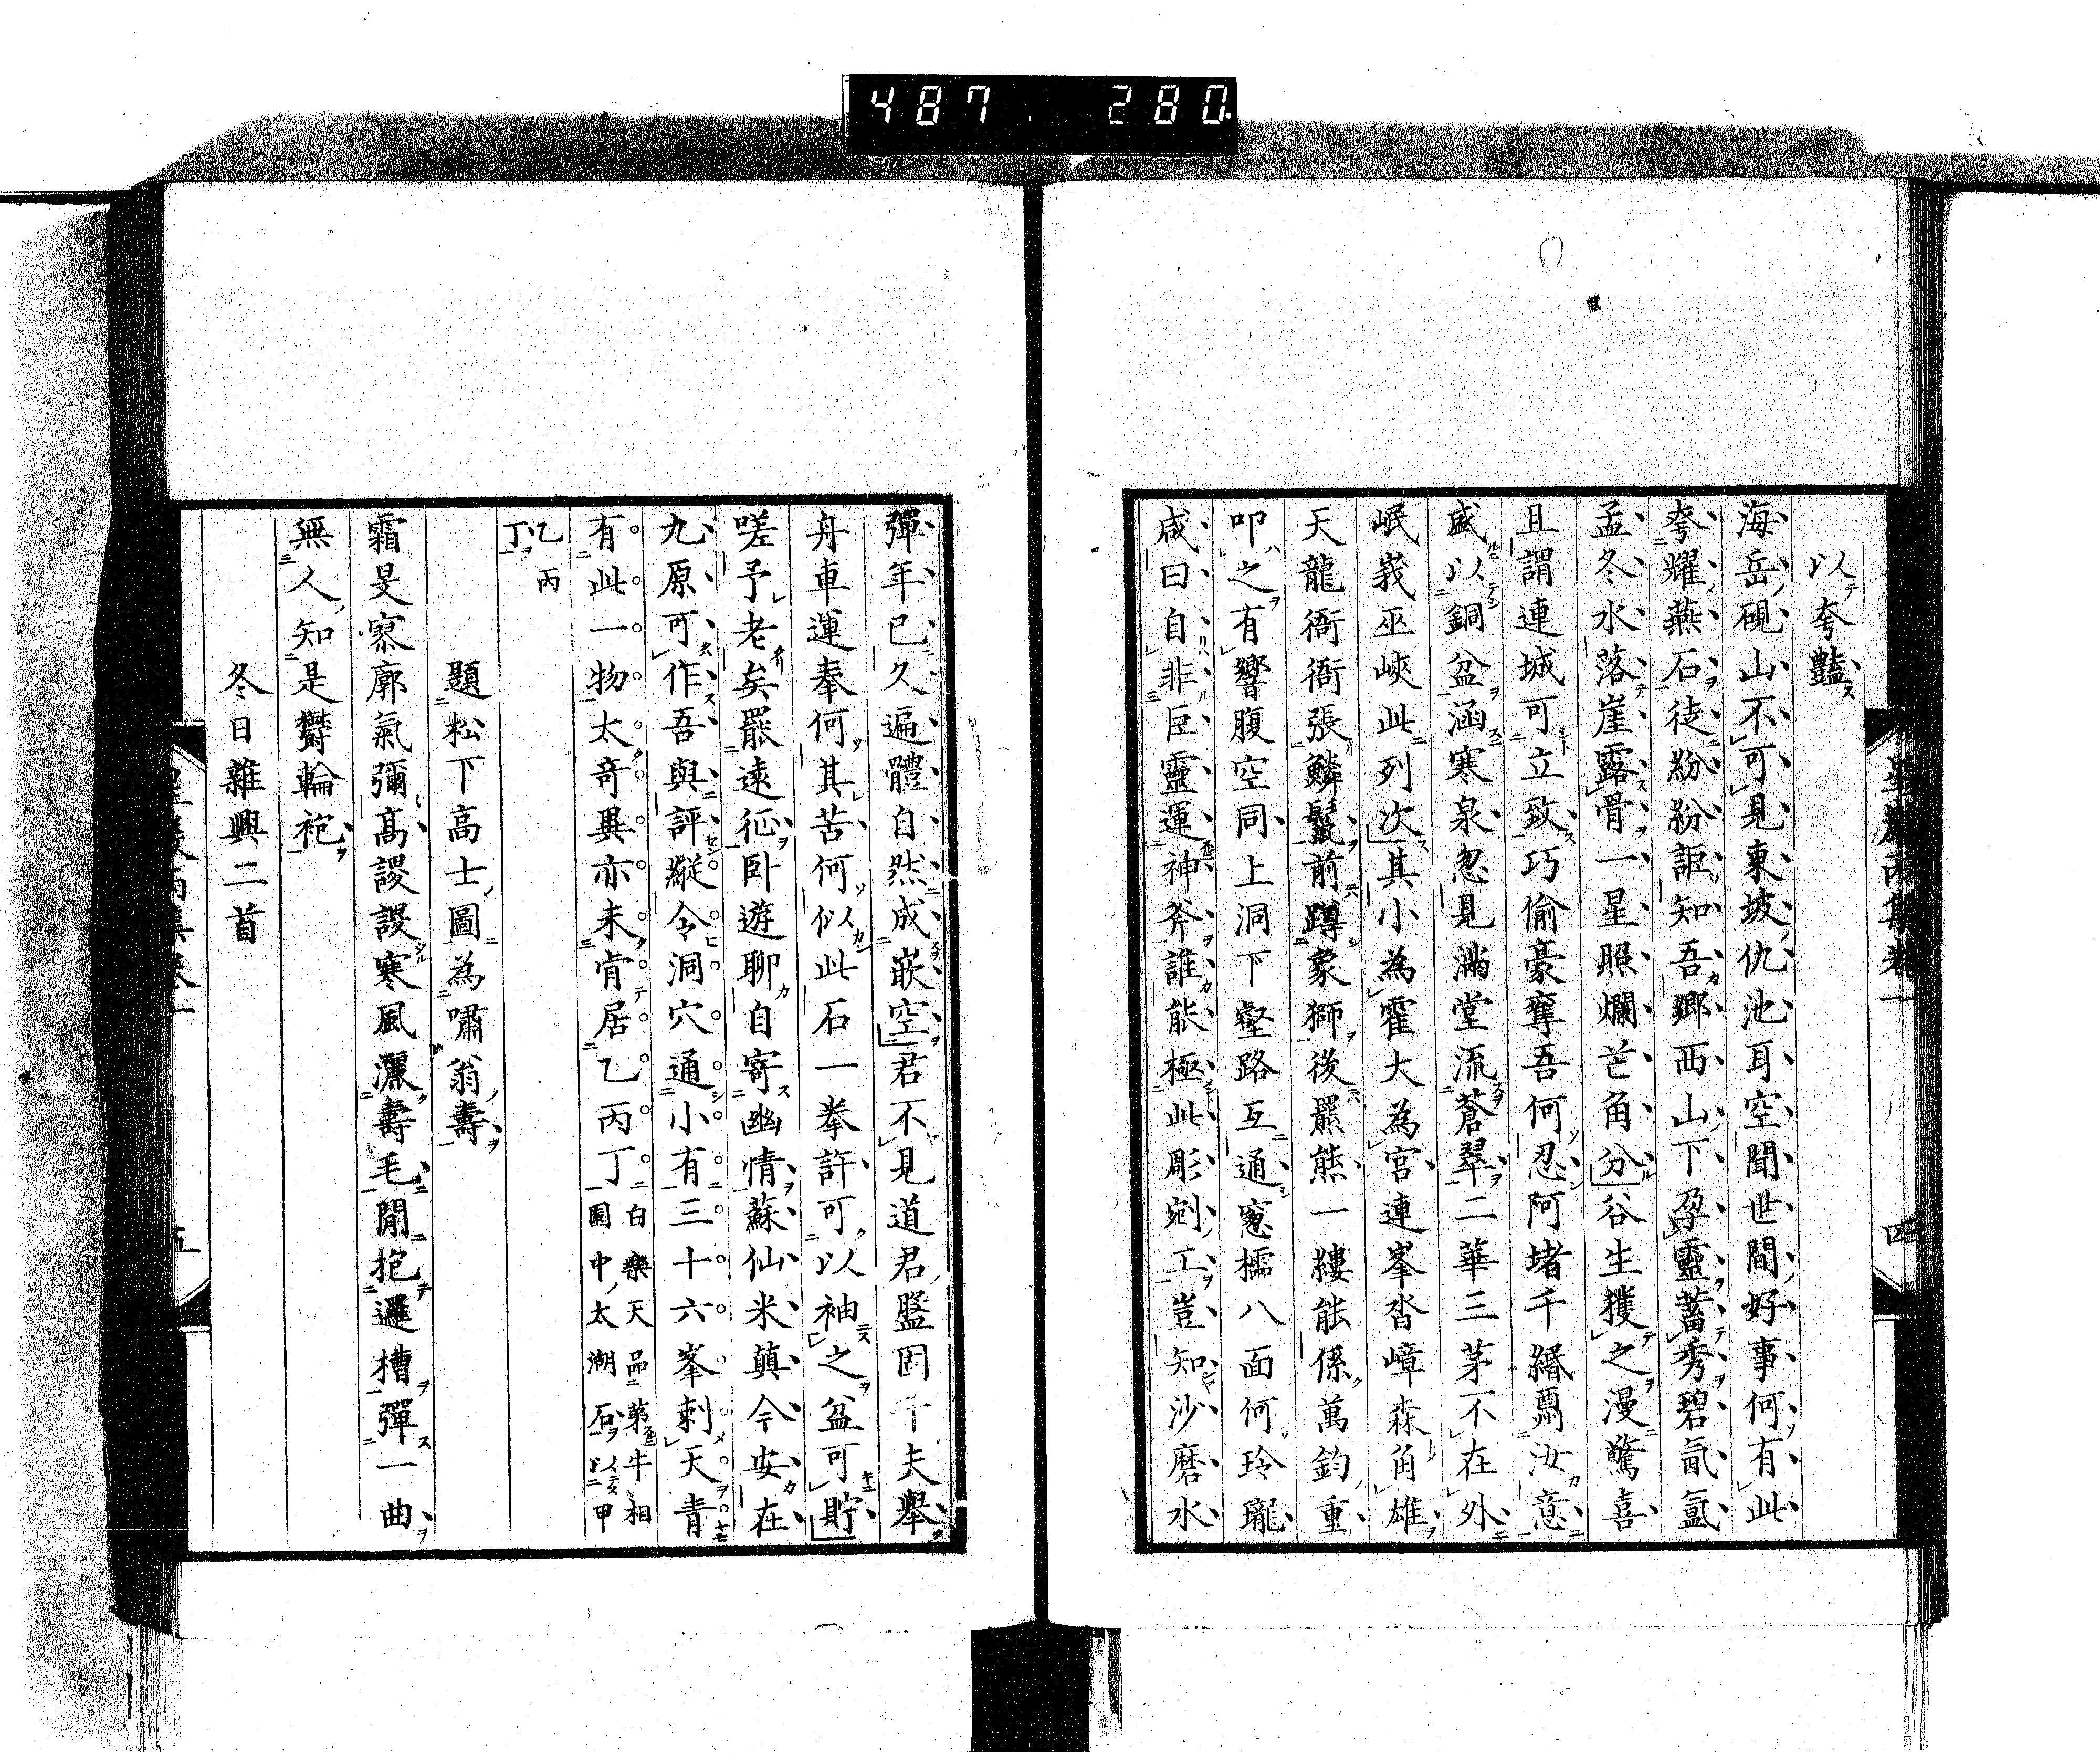 487 280
以夸豔
海岳硯山不可見東坡仇池耳空聞世間好事何有此
夸耀燕石徒紛紛詎知吾鄉西山下孕靈蓄秀碧氤氳
孟冬水落崖露骨一星照爛芒角分谷生獲之漫驚喜
且謂連城可立致巧偷豪奪吾何忍阿堵千緡爲汝意
盛以銅盆涵寒泉忽見滿堂流蒼翠二華三茅不在外
岷峩巫峽此列次其小為霍大為宮連峯沓嶂森角雄
天龍衙衙張鱗鬣前蹲象獅後羆熊一縷能係萬鈞重
叩之有響腹空同上洞下壑路互通窓櫺八面何玲瓏
咸曰自非巨靈運神斧誰能極此彫剜工豈知沙磨水
聖巖丙集卷一
四
彈年已久遍體自然成嵌空君不見道君盤固千夫舉
舟車運奉何其苦何似此石一拳許可以袖之盆可貯
嗟予老矣罷遠征臥遊聊自寄幽情蘇仙米顛今安在
九原可作吾與評縱令洞穴通小有三十六峯刺天青
有此一物太奇異亦未肯居乙丙丁 白樂天品第牛相
園中太湖石以甲
乙丙
丁
題松下高士圖為嘯翁壽
霜旻寥廓氣彌高謖謖寒風灑壽毛閒抱邏槽彈一曲
無人知是鬱輪袍
冬日雜興二首
五